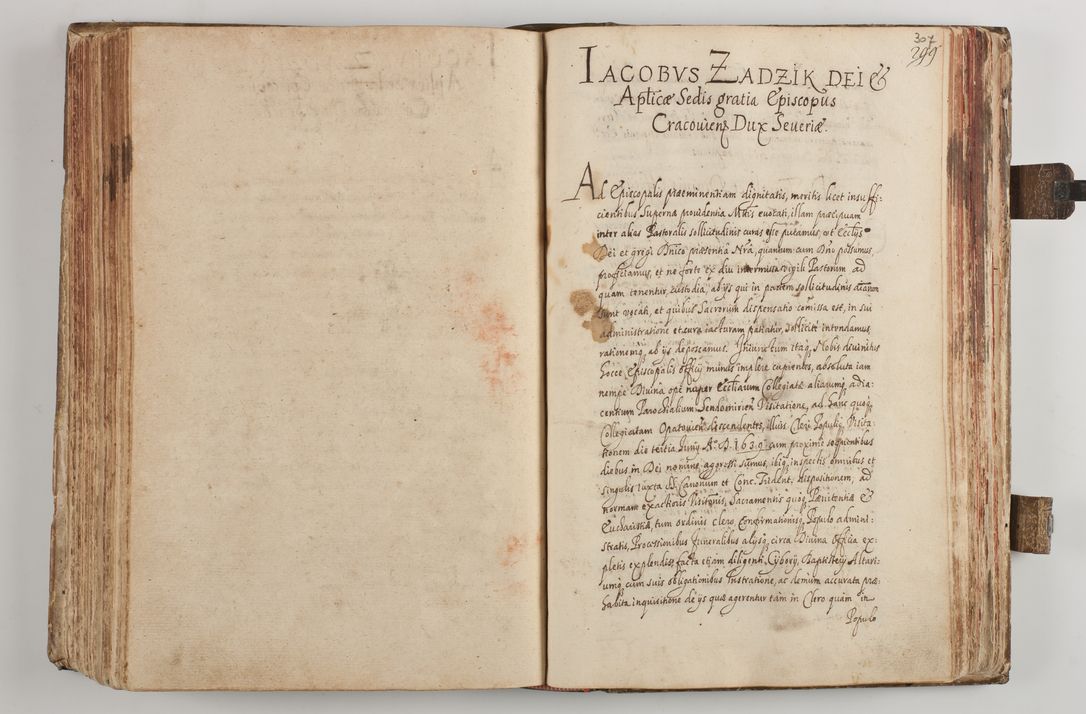 307
299
IACOBVS ZADZIK DEI &
Aplicæ Sedis gratia Episcopus
Cracouien Dux Seueriæ.
Ad Episcopalis præeminentiam dignitatis, meritis licet insuffi:
cientibus Superna prouidentia Nos euocati, illam præcipuam
inter alias Pastoralis sollicitudinis curas esse putamus, ut Ecclijs
Dei et gregi Dnico præsentia Nra, quantum cum Dno possumus,
proficiamus, et ne forte ex diu intermissa vigili Pastorum ad
quam tenentur, custodia, ab ijs qui in partem sollicitudinis
sunt vocati, et quibus Sacrorum dispensatio comissa est, in sui
administratione et cura iacturam patiatur, sollicite intendamus
rationemq, ab ijs deposcamus. Iniunctum itaq, Nobis diuinitus
hocce Episcopalis officij munus implere cupientes, absoluta iam
nempe Diuina ope nuper Ecclarum Collegiatæ aliarumq, adia:
centium Parochialium Sendomirien Visitatione, ad hanc quoq,
Collegiatam Opatouien descendentes, illius Cleri Populiq, Visita:
tionem die tertia Iunij Ao. D. 1639. cum proxime sequentibus
diebus in Dei nomine aggressi sumus, ibiq, inspectis omnibus et
singulis iuxta S. Canonum et Conc. Trident. dispositionem, ad
normam exactioris Visitonis, Sacramentis quoq, Pænitentiæ &
Eucharistiæ, tum ordinis Clero Confirmationisq, Populo admini:
stratis, Processionibus funeralibus alijsq, circa Diuina Officia ex:
pletis explendis, facta etiam diligenti, Cyborij, Baptisterij Altari:
umq, cum suis obligationibus lustratione, ac demum accurata præ:
habita inquisitione de ijs quæ agerentur tam in Clero quam in
Populo